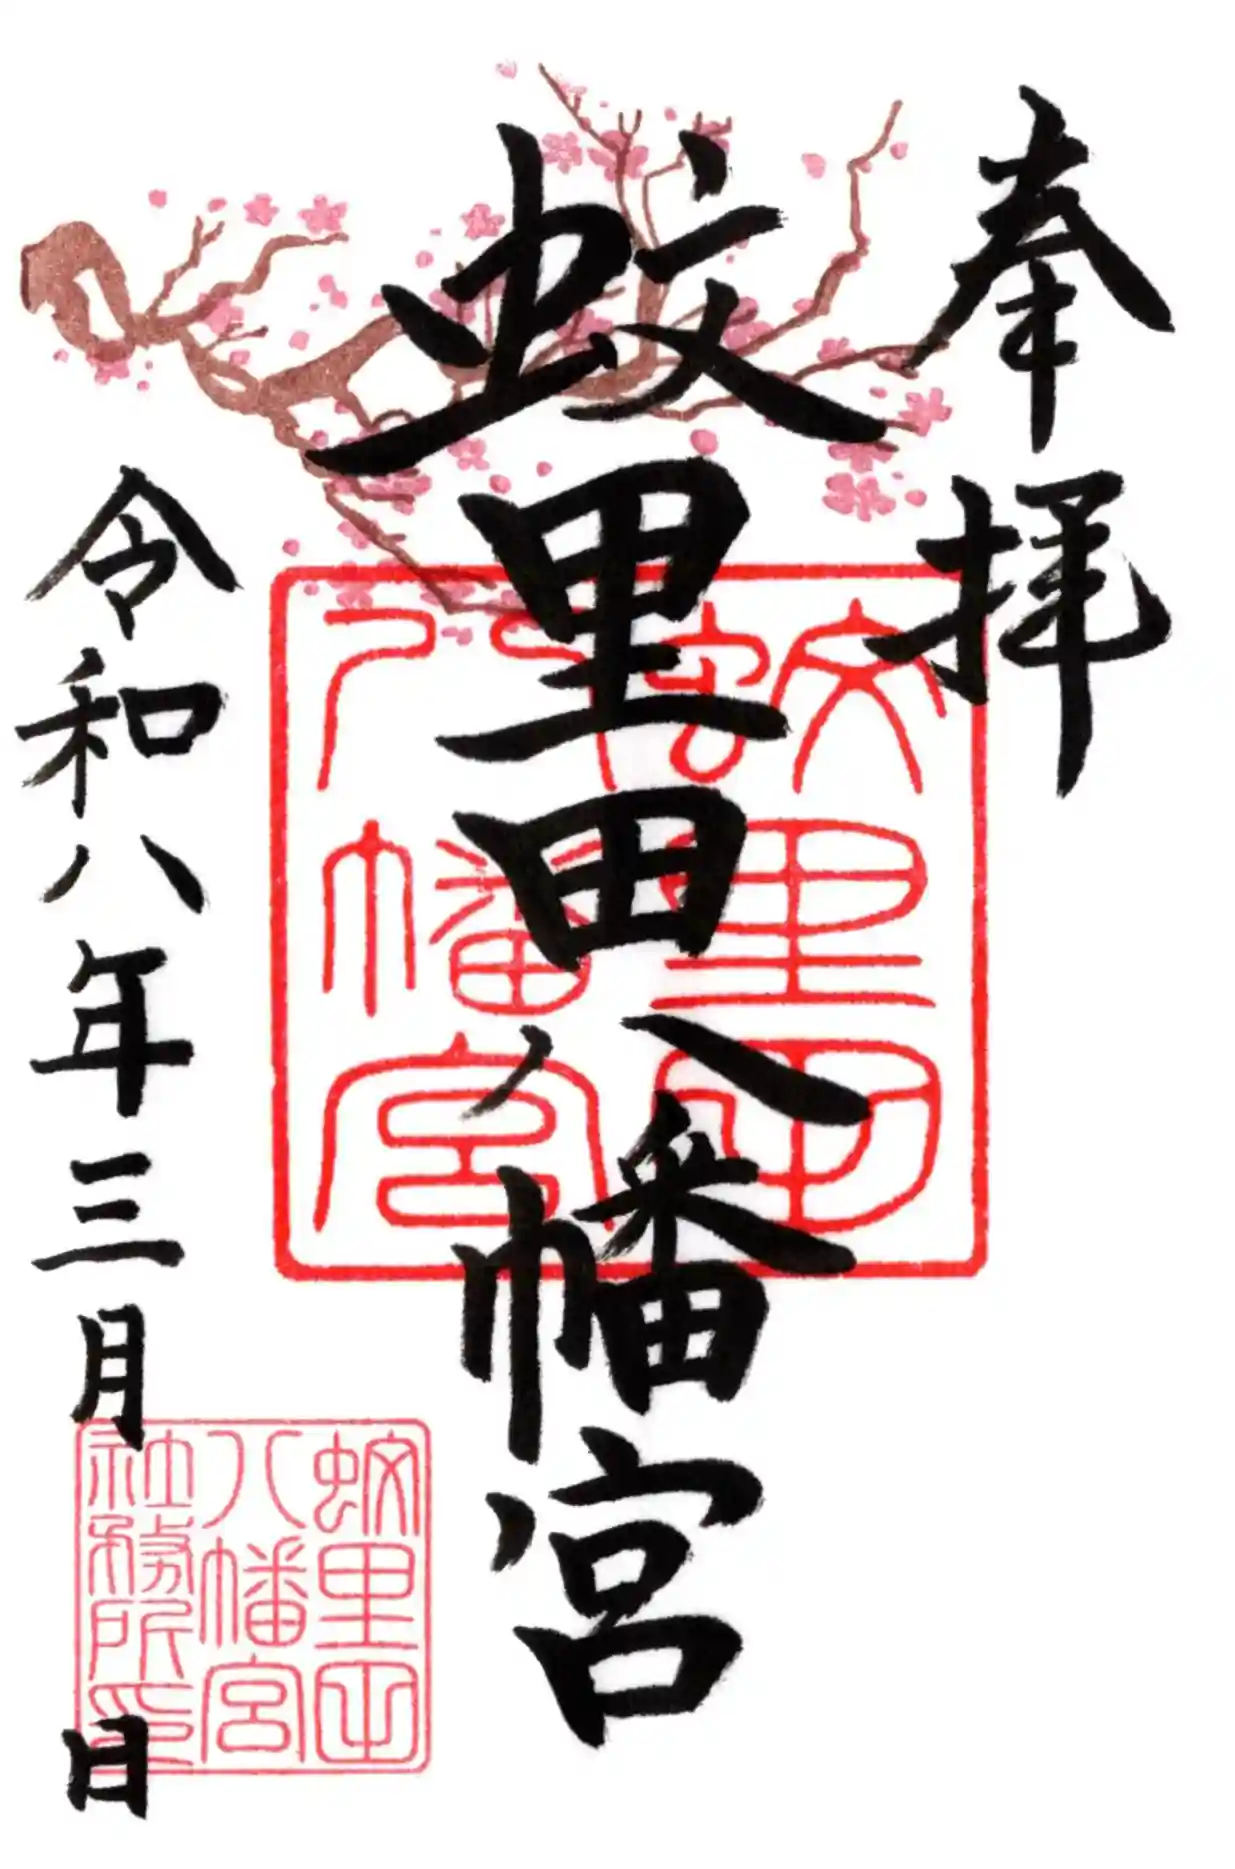 奉拝
蛟里田八幡宮
蛟里田
八幡宮
令和八年三月 日
蛟里田
八幡宮
社務所印